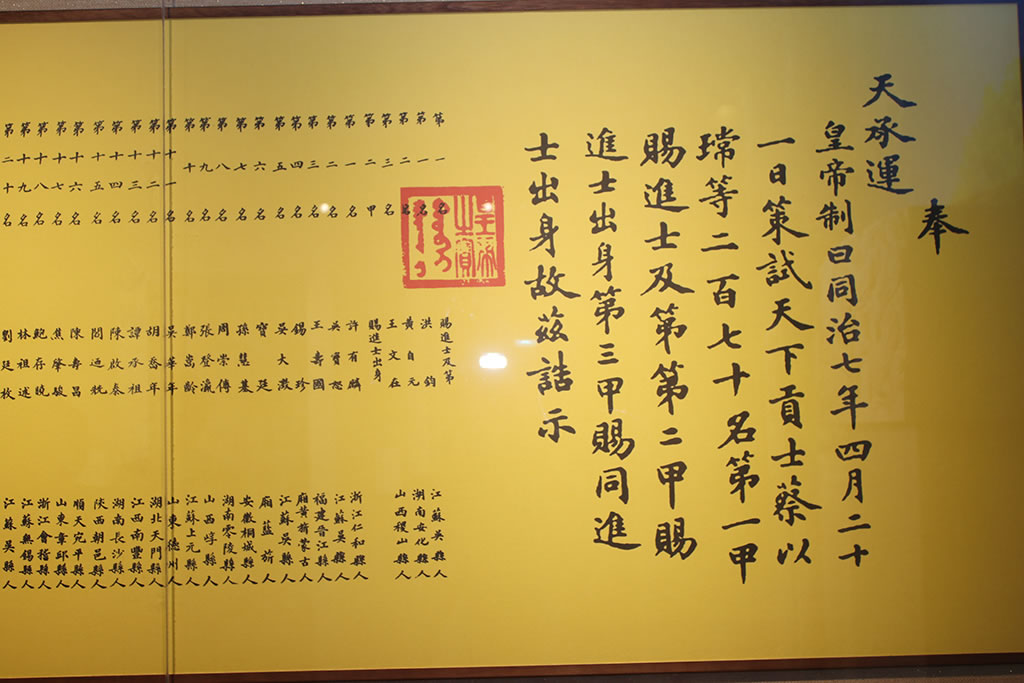 奉
天承運
皇帝制曰同治七年四月二十
一日策試天下貢士蔡以
瑺等二百七十名第一甲
賜進士及第第二甲賜
進士出身第三甲賜同進
士出身故茲誥示
第一名 賜進士及第
第一名 洪鈞 江蘇吳縣人
第二名 黃自元 湖南安化縣人
第三名 王文在 山西稷山縣人
第二甲 賜進士出身
第一名 許有麟 浙江仁和縣人
第二名 吳寶恕 江蘇吳縣人
第三名 王壽國 福建晋江縣人
第四名 錫珍 廂黃旗蒙古人
第五名 吳大澂 江蘇吳縣人
第六名 寶廷 廂藍旗人
第七名 孫慧基 安徽桐城縣人
第八名 周崇傳 湖南零陵縣人
第九名 張登瀛 山西崞縣人
第十名 鄭嵩齡 江蘇上元縣人
第十一名 吳華年 山東德州人
第十二名 胡喬年 湖北天門縣人
第十三名 譚承祖 江西南豐縣人
第十四名 陳啟泰 湖南長沙縣人
第十五名 閻迺兟 陝西朝邑縣人
第十六名 陳壽昌 順天宛平縣人
第十七名 焦肇駿 山東章邱縣人
第十八名 鮑存曉 浙江會稽縣人
第十九名 林祖述 江蘇無錫縣人
第二十名 劉廷枚 江蘇吳縣人